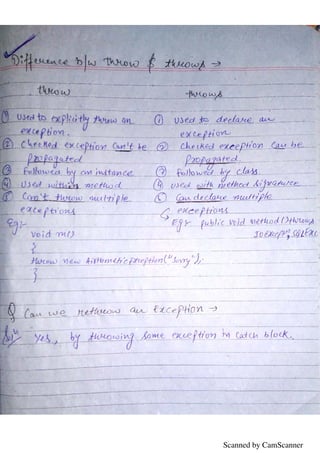 Difference b/w throw & throws →
throw throws
① used to explicitly throw an ① used to declare an
exception. exception
② Checked exception can't be ② Checked exception can be
propagated propagated.
③ Followed by an instance ③ Followed by class
④ Used within method ④ used with method signature
⑤ Can't throw multiple ⑤ Can declare multiple
exceptions ↳ exceptions
Eg:- Eg:- public void method() throws
void m() IOExcep
{
throw new ArithmeticException("Sorry");
}
Q Can we rethrow an Exception →
Yes, by throwing same exception in catch block.
Scanned by CamScanner